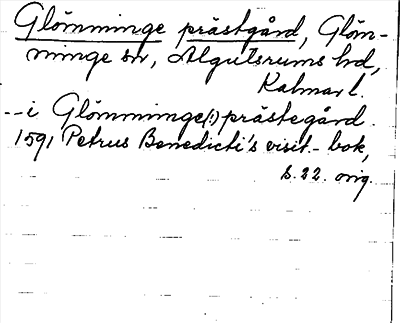 Glömminge prästgård, Glöm-
minge sn, Algutsrums hd,
Kalmar l.
--i Glömminge(!) prästegård.
1591 Petrus Benedicti's visit.-bok,
s. 22. orig.